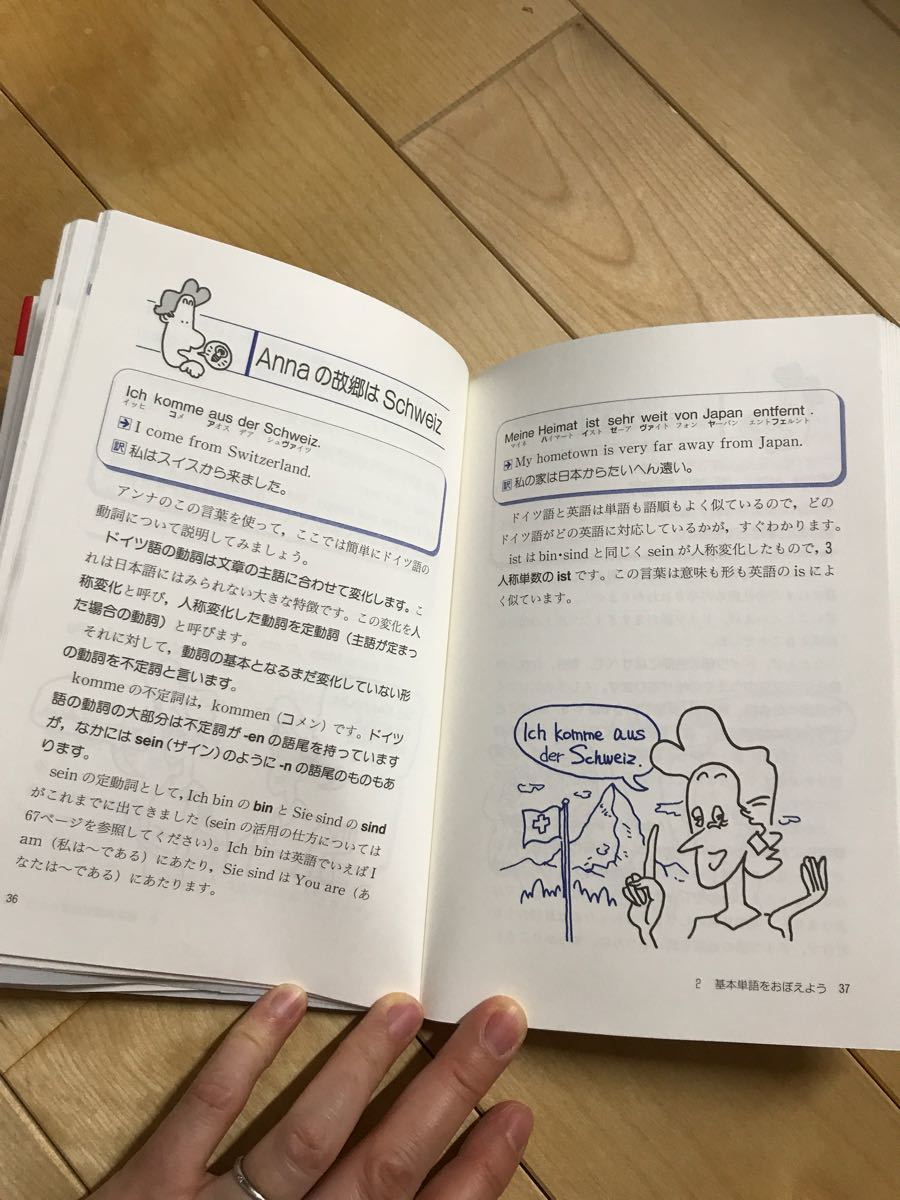 Annaの故郷はSchweiz
Ich komme aus der Schweiz.
イッヒ コメ アオス デア シュヴァイツ
➔ I come from Switzerland.
訳 私はスイスから来ました。
アンナのこの言葉を使って，ここでは簡単にドイツ語の
動詞について説明してみましょう。
ドイツ語の動詞は文章の主語に合わせて変化します。こ
れは日本語にはみられない大きな特徴です。この変化を人
称変化と呼び，人称変化した動詞を定動詞（主語が定まっ
た場合の動詞）と呼びます。
それに対して，動詞の基本となるまだ変化していない形
の動詞を不定詞と言います。
kommeの不定詞は，kommen（コメン）です。ドイツ
語の動詞の大部分は不定詞が-enの語尾を持っています
が，なかにはsein（ザイン）のように-nの語尾のものもあ
ります。
seinの定動詞として，Ich binのbinとSie sindのsind
がこれまでに出てきました（seinの活用の仕方については
67ページを参照してください）。Ich binは英語でいえばI
am（私は〜である）にあたり，Sie sindはYou are（あ
なたは〜である）にあたります。
36
Meine Heimat ist sehr weit von Japan entfernt.
マイネ ハイマート イスト ゼーア ヴァイト フォン ヤーパン エントフェルント
➔ My hometown is very far away from Japan.
訳 私の家は日本からたいへん遠い。
ドイツ語と英語は単語も語順もよく似ているので，どの
ドイツ語がどの英語に対応しているかが，すぐわかります。
istはbin・sindと同じくseinが人称変化したもので，3
人称単数のistです。この言葉は意味も形も英語のisによ
く似ています。
Ich komme aus
der Schweiz.
2 基本単語をおぼえよう 37